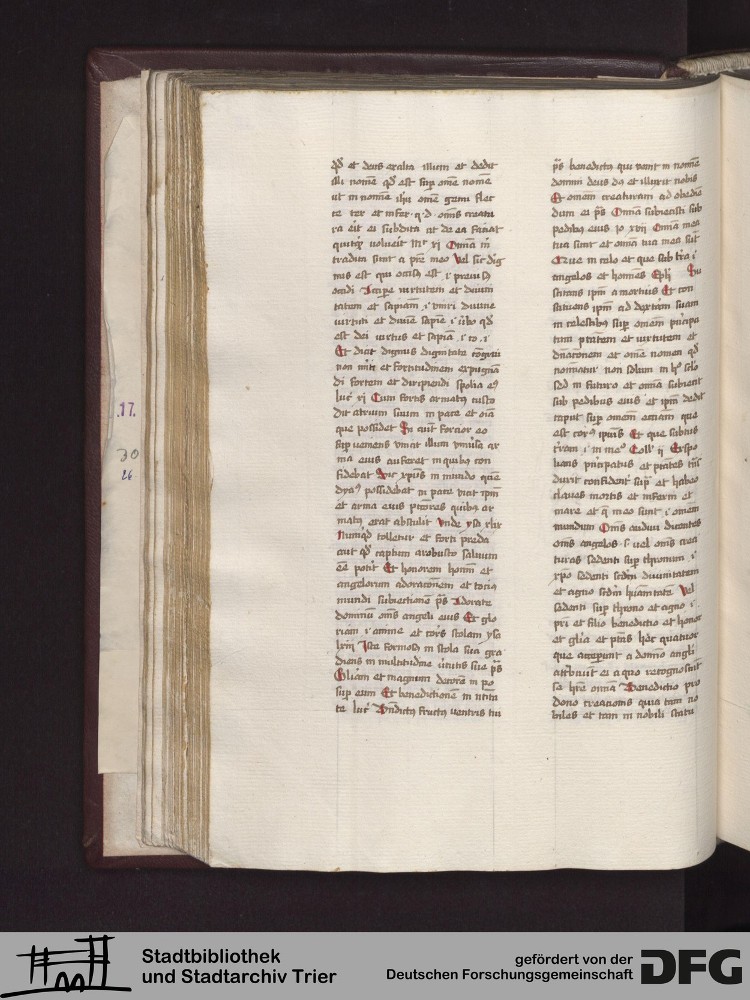 qđ et deus exalta illum et dedit
illi nomē qđ est sup̄ omē nomē
ut in nomine ihu omē genu flec
te
ra eit ei subdita ut de ea faciat
quitqͥ voluerit Mt xi Omīa m̄
tradita sunt a pr̄e meo Vel sic dig
nus est qui occisus est
occidi Accipe virtutem et divini
tatem et sapiām .i. uniri divine
virtuti et divīe sapīe .i. v̄bo qđ
est dei virtus et sapīa
Et dicit dignus dignitate
non et fortitudinem expugnā
di fortem et diripiendi spolia eꝰ
luc̄ xi Cum fortis armatus custo
dit atrium suum in pace et oīa
que possidet Si aut̄ forcior eo
sup̄ueniens vincit illum vniūsa ar
ma eius auferet in quibus con
fidebat Sic xp̄us in mundo quē
dyaꝰ possidebat in pace vicit ip̄m
et arma eius quibus ar
matus erat abstulit Vnde ysa xlix
Nunqͥd tolletur et forti preda
aut qđ captum a robusto saluum
eē potit̄ Et honorem hoīm et
angelorum adoracōnem et tocius
mundi subiectionē p̄s Adorate
dominū oms angeli eius Et glo
riam .i. anime et corpis stolam ysa
lxiii Iste formosus in stola sua gra
diens in multitudine v̄tutis sue p̄s
Gl̄iam et magnum decorē in po
sup̄ eum Et benedictionē
te luc̄ Bn̄dictus fructus ventris tui
p̄s benedictus qui venit in nomīe
domini deus dn̄s et illuxit nobis
Et omnem creaturam ad obediē
dum ei p̄s Omīa subiecisti sub
pedibus eius Jo xvii Omīa mea
tua sunt et omīa tua mea sūt
Que in celo et que sub t̄ra .i.
angelos et homines Eph̄
scitans ip̄m a mortuis Et con
stituens ip̄m ad dextrām suam
in celestibus sup̄ omem principa
tum p̄tātem et virtutem et
dn̄acōnem et omē nomen qđ
nominatur non solum in hͦ sc̄lo
sed in futuro et omīa subiecit
sub pedibus eius et ip̄m dedit
caput sup̄ omem ecciam que
est corpꝰ ipsius Et que subtus
t̄ram .i. Coll̄ ii Exspo
lians principatus et p̄tates
duxit confident̄ sup̄ et habeo
claves mortis et inferni et
mare et q̄ in eo sunt .i. omem
mundum Oms audivi dicentes
oms angelos .s. vel oms crea
turas Sedenti sup̄ thronum .i.
xp̄o sedenti sc̄dm divinitatem
et agno sc̄dm hūanitatē Vel
sedenti sup̄ throno et agno .i.
pr̄i et filio benedictio et honor
et gl̄ia et p̄tās hec quatuor
que acceperunt a domino angl̄i
attribuūt ei a quo recognoscūt
se hr̄e omīa Benedictio pro
dono creacionis quia tam no
biles et tam in nobili statu
.17.
30
26
Stadtbibliothek
und Stadtarchiv Trier
gefördert von der
Deutschen Forschungsgemeinschaft
DFG